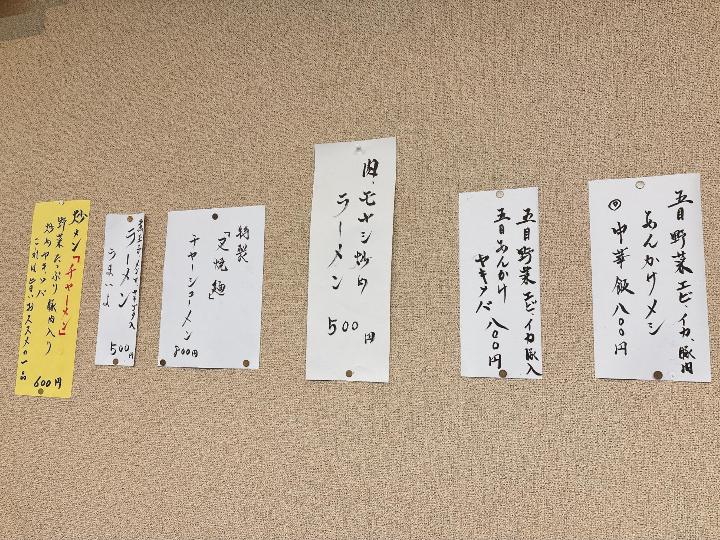 五目野菜エビ、イカ、豚肉
あんかけメシ
中華飯八〇〇円
五目野菜エビ、イカ豚入
五目あんかけ
ヤキソバ 八〇〇円
肉、モヤシ炒め
ラーメン
500円
特製
「叉焼麺」
チャーシューメン
800円
ラーメン
うまいよ
500円
炒メン「チャーメン」
野菜たっぷり豚肉入り
炒めヤキソバ
これは旨いおススメの一品
600円